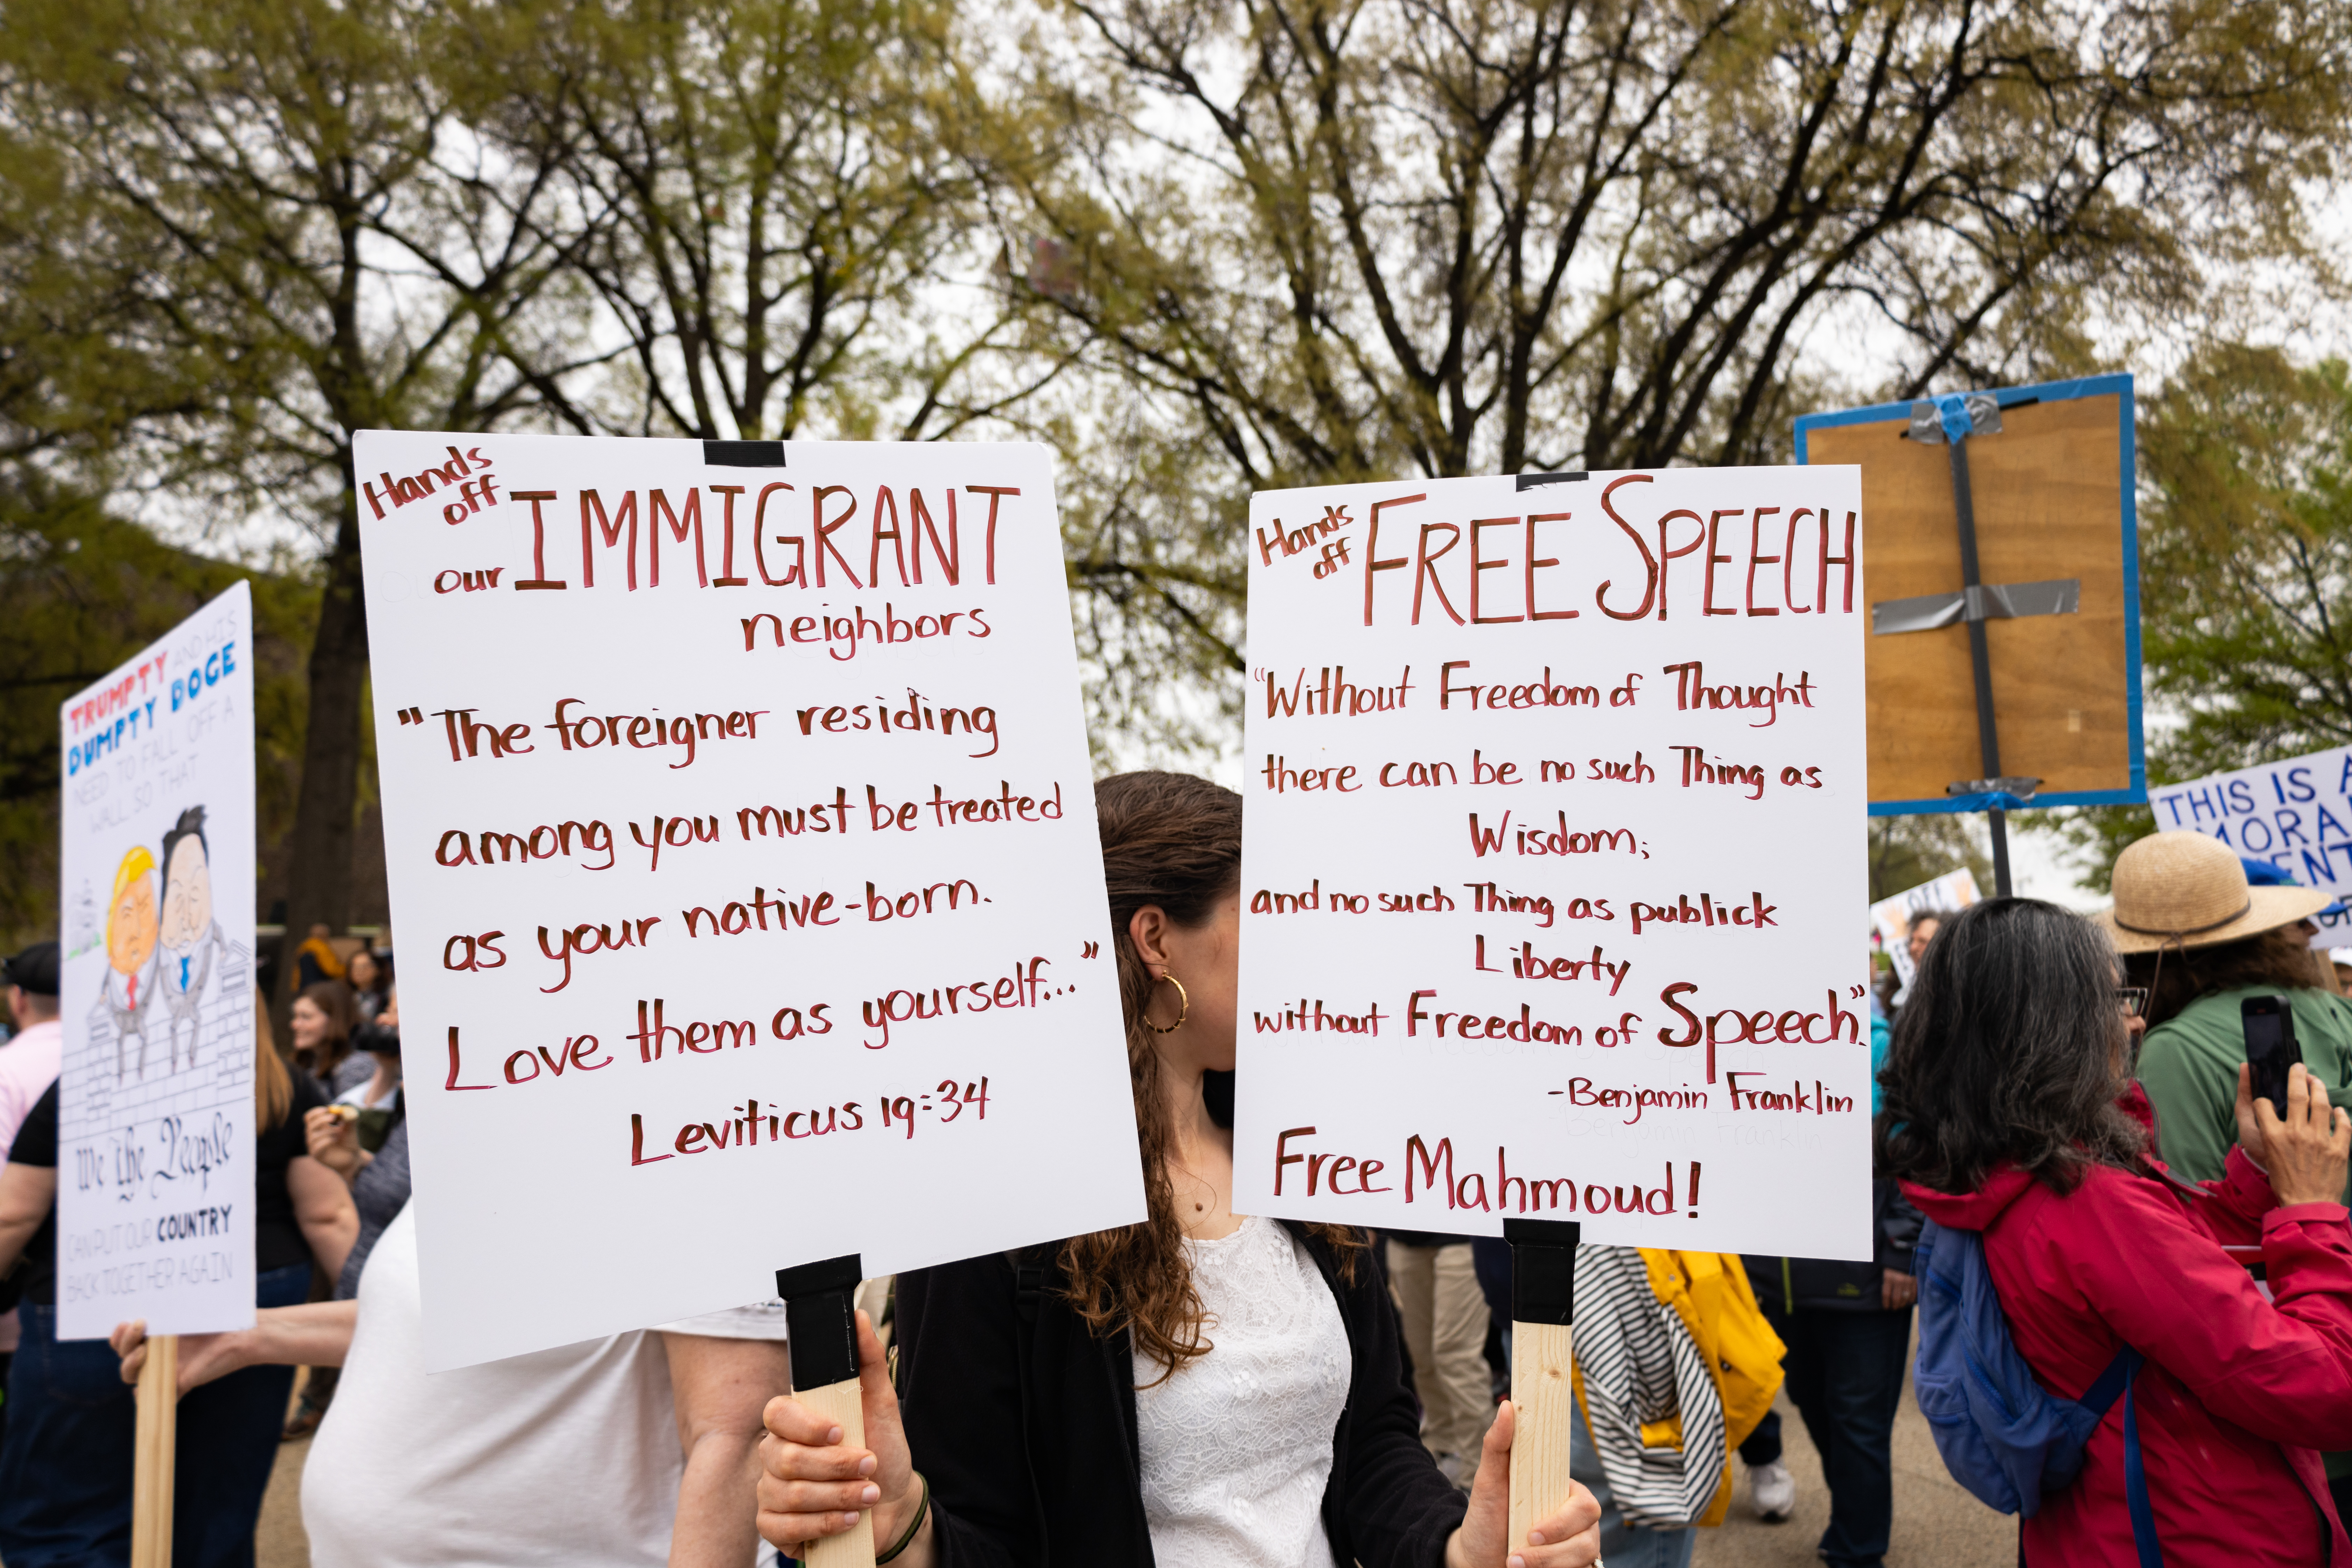 TRUMPTY AND HIS
DUMPTY DOGE
NEED TO FALL OFF A
WALL SO THAT
We the People
CAN PUT OUR COUNTRY
BACK TOGETHER AGAIN
Hands
off
our IMMIGRANT
neighbors
"The foreigner residing
among you must be treated
as your native-born.
Love them as yourself..."
Leviticus 19:34
Hands
off
FREE SPEECH
"Without Freedom of Thought
there can be no such Thing as
Wisdom;
and no such Thing as publick
Liberty
without Freedom of Speech."
-Benjamin Franklin
Free Mahmoud!
THIS IS A
MORA
ENT
OFF